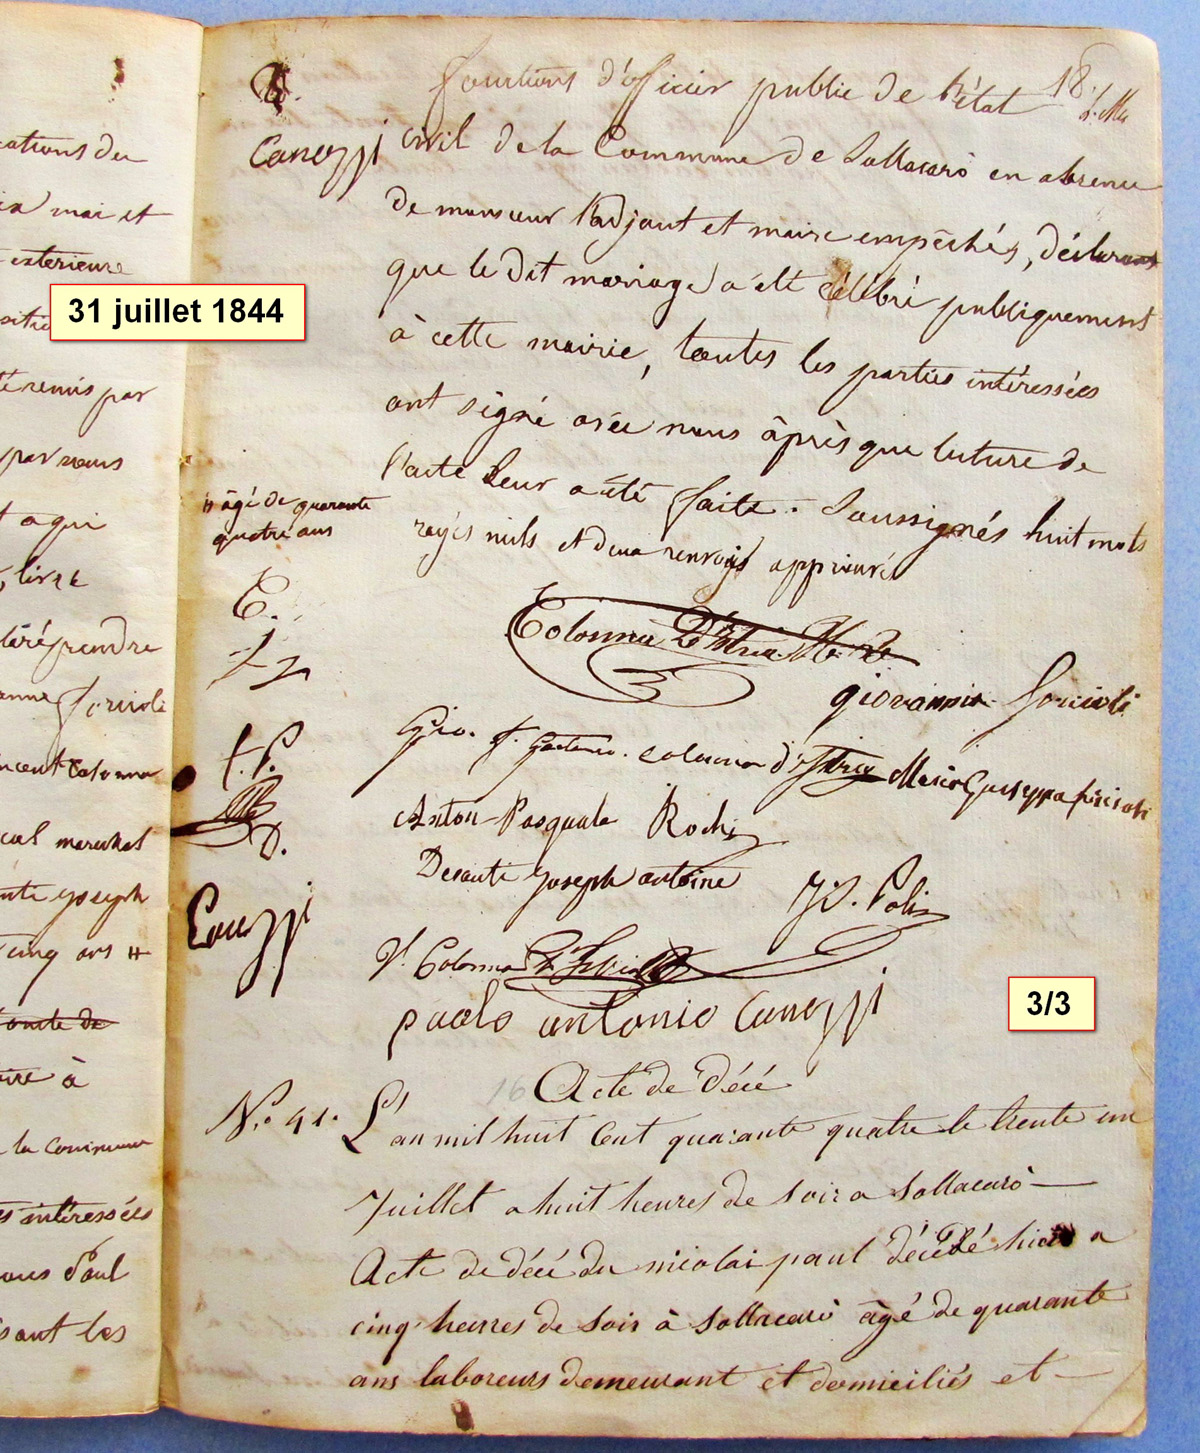 cations du
mai et
exterieure
31 juillet 1844
remis par
par nous
a qui
livre
prendre
Forcioli
Vincent Colonna
marechal
Joseph
cinq ans #
de
à
la Commune
intéressées
Paul
sont les
Canozzi
âgé de quarante
quatre ans
C.
f. P.
D.
Canozzi
18.
fonctions d'officier public de l'état
civil de la Commune de Sollacarò en absence
de monsieur l'adjoint et maire empêchés, déclarant
que le dit mariage a été célébré publiquement
à cette mairie, toutes les parties intéressées
ont signé avec nous âprès que luture de
l'acte leur a été faite. Soussignés huit mots
rayés nuls et deux renvois approuvé
Colonna D'Istria
giovannia Forcioli
Gio. f. Gaetano. colonna d'Istria Maria Giuseppa forcioli
Anton-Pasquale Rochi
Desanti Joseph antoine
J. V. Poli
V. Colonna D'Istria
paolo antonio Canozzi
3/3
16 Acte de Décé
N.o 41. L'an mil huit Cent quarante quatre le trente un
Juillet a huit heures de soir a Sollacarò
Acte de décé du nicolai paul décédé hier a
cinq heures de soir à Sollacarò âgé de quarante
ans laboreurs demeurant et domiciliés et